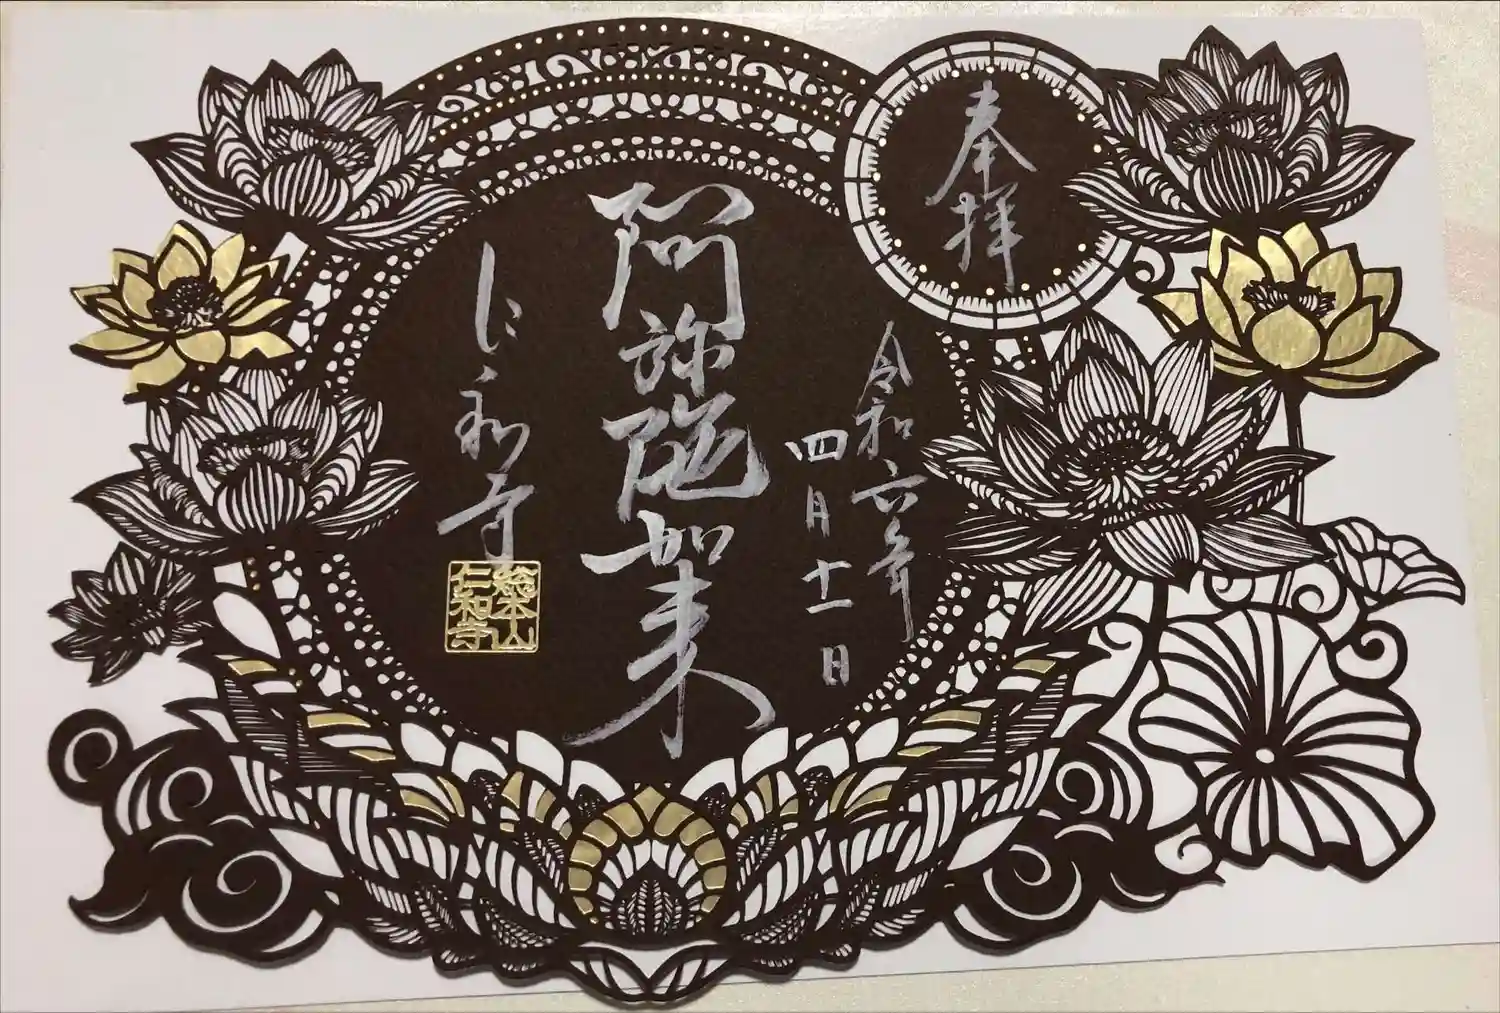 奉拝
令和六年
四月十一日
阿弥陀如来
仁和寺
総本山
仁和寺